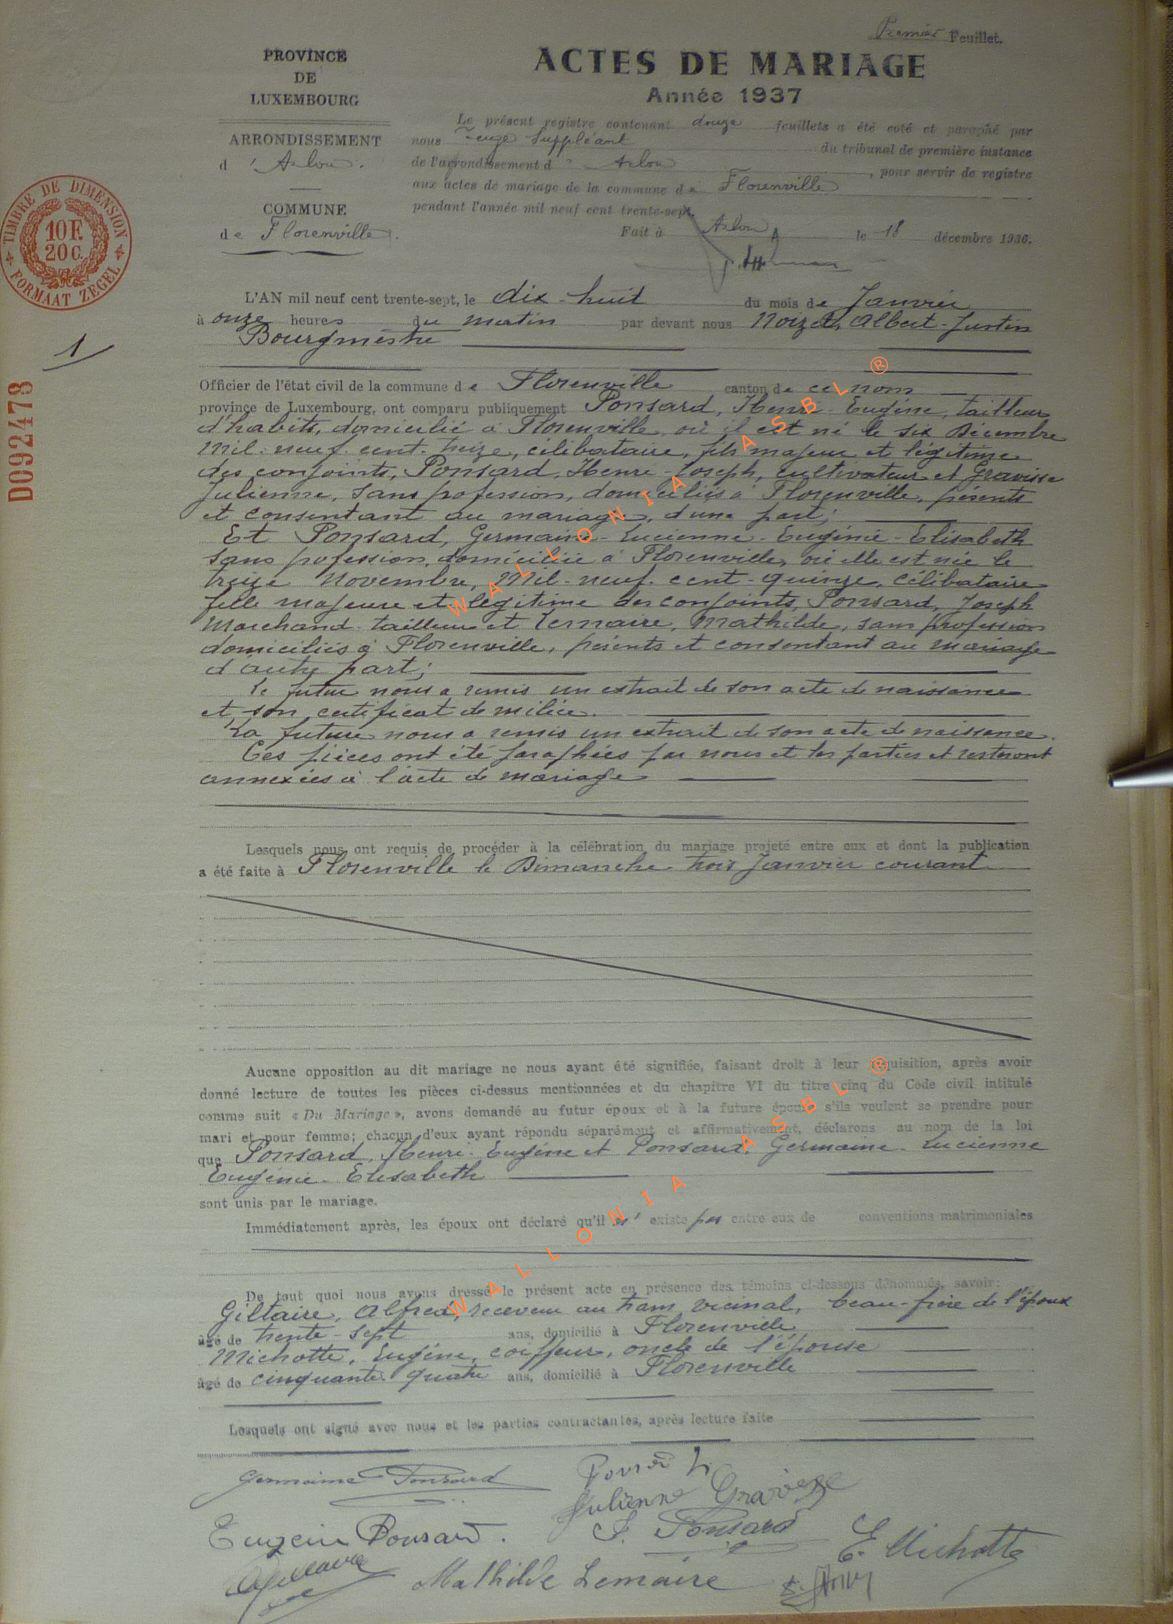 Premier Feuillet.
PROVINCE
DE
LUXEMBOURG
ARRONDISSEMENT
d'Arlon.
COMMUNE
de Florenville.
TIMBRE DE DIMENSION
10 F.
20 C.
FORMAAT ZEGEL
1
D092473
ACTES DE MARIAGE
Année 1937
Le présent registre contenant douze feuillets a été coté et paraphé par
nous Juge Suppléant du tribunal de première instance
de l'arrondissement d'Arlon, pour servir de registre
aux actes de mariage de la commune de Florenville
pendant l'année mil neuf cent trente-sept.
Fait à Arlon le 18 décembre 1936.
L'AN mil neuf cent trente-sept, le dix-huit du mois de Janvier
à onze heures du matin par devant nous Noizet, Albert-Justin
Bourgmestre
Officier de l'état civil de la commune de Florenville canton de ce nom
province de Luxembourg, ont comparu publiquement Ponsard, Henri-Eugène, tailleur
d'habits, domicilié à Florenville, où il est né le six Décembre
mil-neuf-cent-treize, célibataire, fils majeur et légitime
des conjoints, Ponsard Henri-Joseph, cultivateur et Gravisse
Julienne, sans profession, domiciliés à Florenville, présents
et consentant au mariage, d'une part;
Et Ponsard, Germaine-Lucienne-Eugénie-Elisabeth
sans profession, domiciliée à Florenville, où elle est née le
treize Novembre, Mil-neuf-cent-quinze, célibataire
fille majeure et légitime des conjoints, Ponsard, Joseph
Marchand-tailleur et Lemaire, Mathilde, sans profession
domiciliés à Florenville, présents et consentant au mariage
d'autre part;
Le futur nous a remis un extrait de son acte de naissance
et son certificat de milice.
La future nous a remis un extrait de son acte de naissance.
Ces pièces ont été paraphées par nous et les parties et resteront
annexées à l'acte de mariage
Lesquels nous ont requis de procéder à la célébration du mariage projeté entre eux et dont la publication
a été faite à Florenville le Dimanche trois Janvier courant
Aucune opposition au dit mariage ne nous ayant été signifiée, faisant droit à leur réquisition, après avoir
donné lecture de toutes les pièces ci-dessus mentionnées et du chapitre VI du titre cinq du Code civil intitulé
comme suit « Du Mariage », avons demandé au futur époux et à la future épouse s'ils veulent se prendre pour
mari et pour femme; chacun d'eux ayant répondu séparément et affirmativement, déclarons au nom de la loi
que Ponsard, Henri-Eugène et Ponsard, Germaine-Lucienne
Eugénie-Elisabeth
sont unis par le mariage.
Immédiatement après, les époux ont déclaré qu'il n'existe pas entre eux de conventions matrimoniales
De tout quoi nous avons dressé le présent acte en présence des témoins ci-dessous dénommés, savoir:
Giltaire, Alfred, receveur au tram vicinal, beau-frère de l'époux
âgé de trente-sept ans, domicilié à Florenville
Michotte, Eugène, coiffeur, oncle de l'épouse
âgé de cinquante-quatre ans, domicilié à Florenville
Lesquels ont signé avec nous et les parties contractantes, après lecture faite
Germaine Ponsard
Ponsard H.
Julienne Gravisse
Eugène Ponsard.
J. Ponsard
E. Michotte
Mathilde Lemaire
WALLONIA ASBL ®
WALLONIA ASBL ®